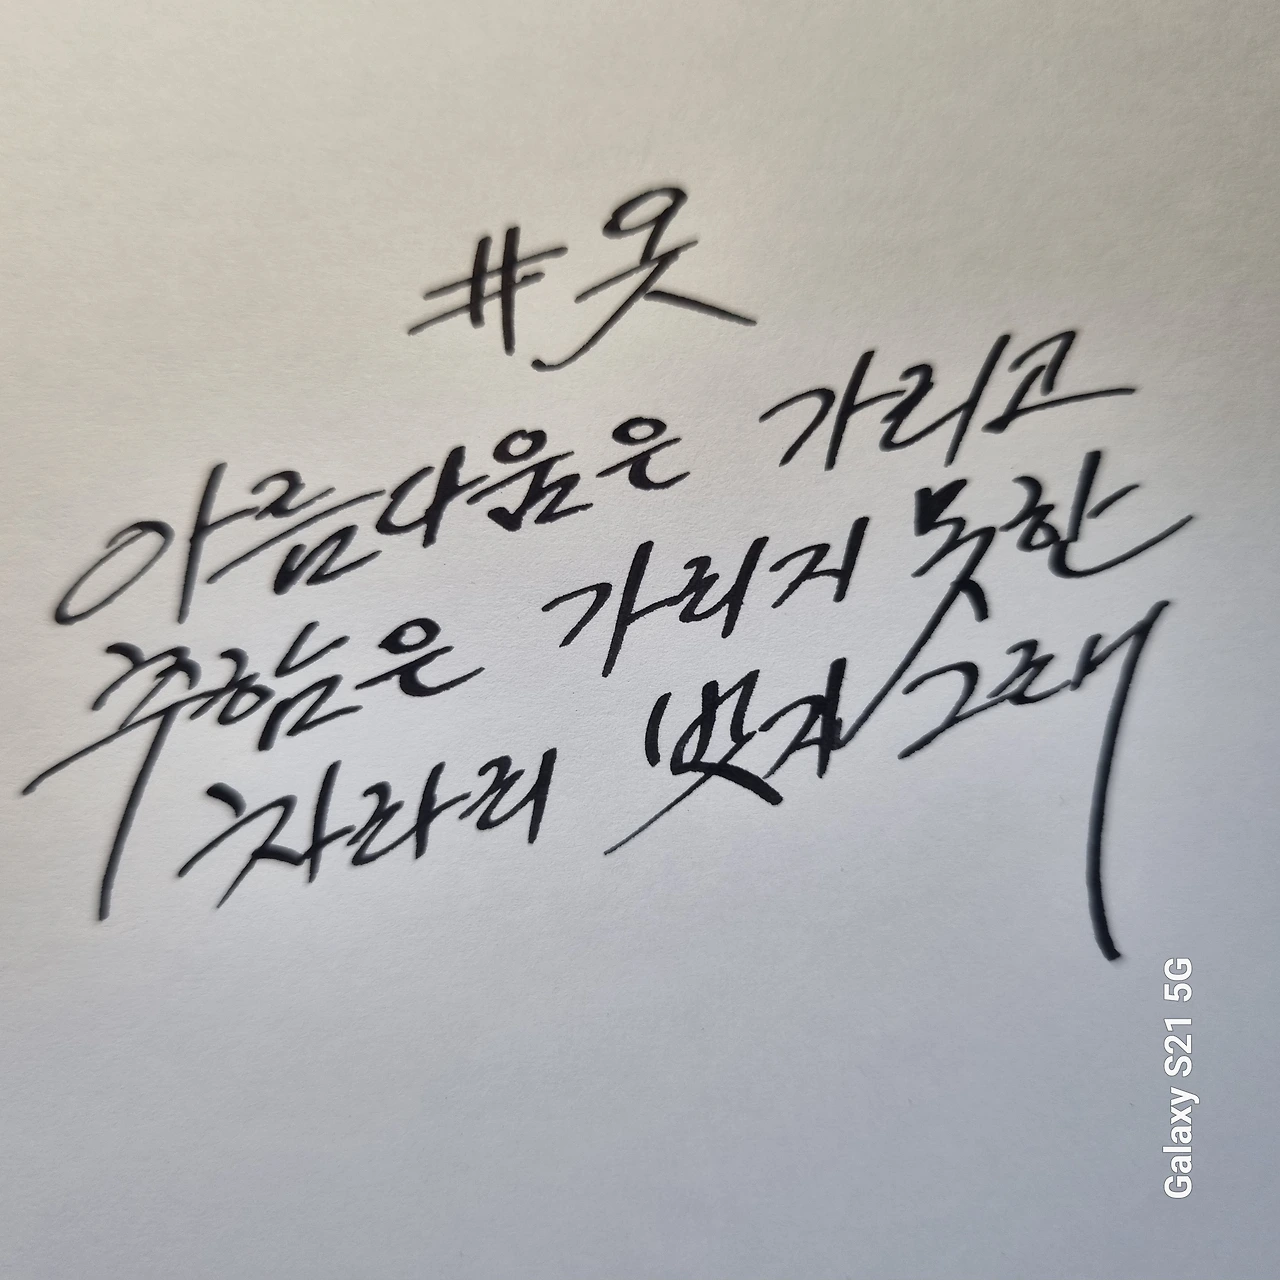 #옷
아름다움은 가리고
추함은 가리지 못한
차라리 벗지 그래
Galaxy S21 5G